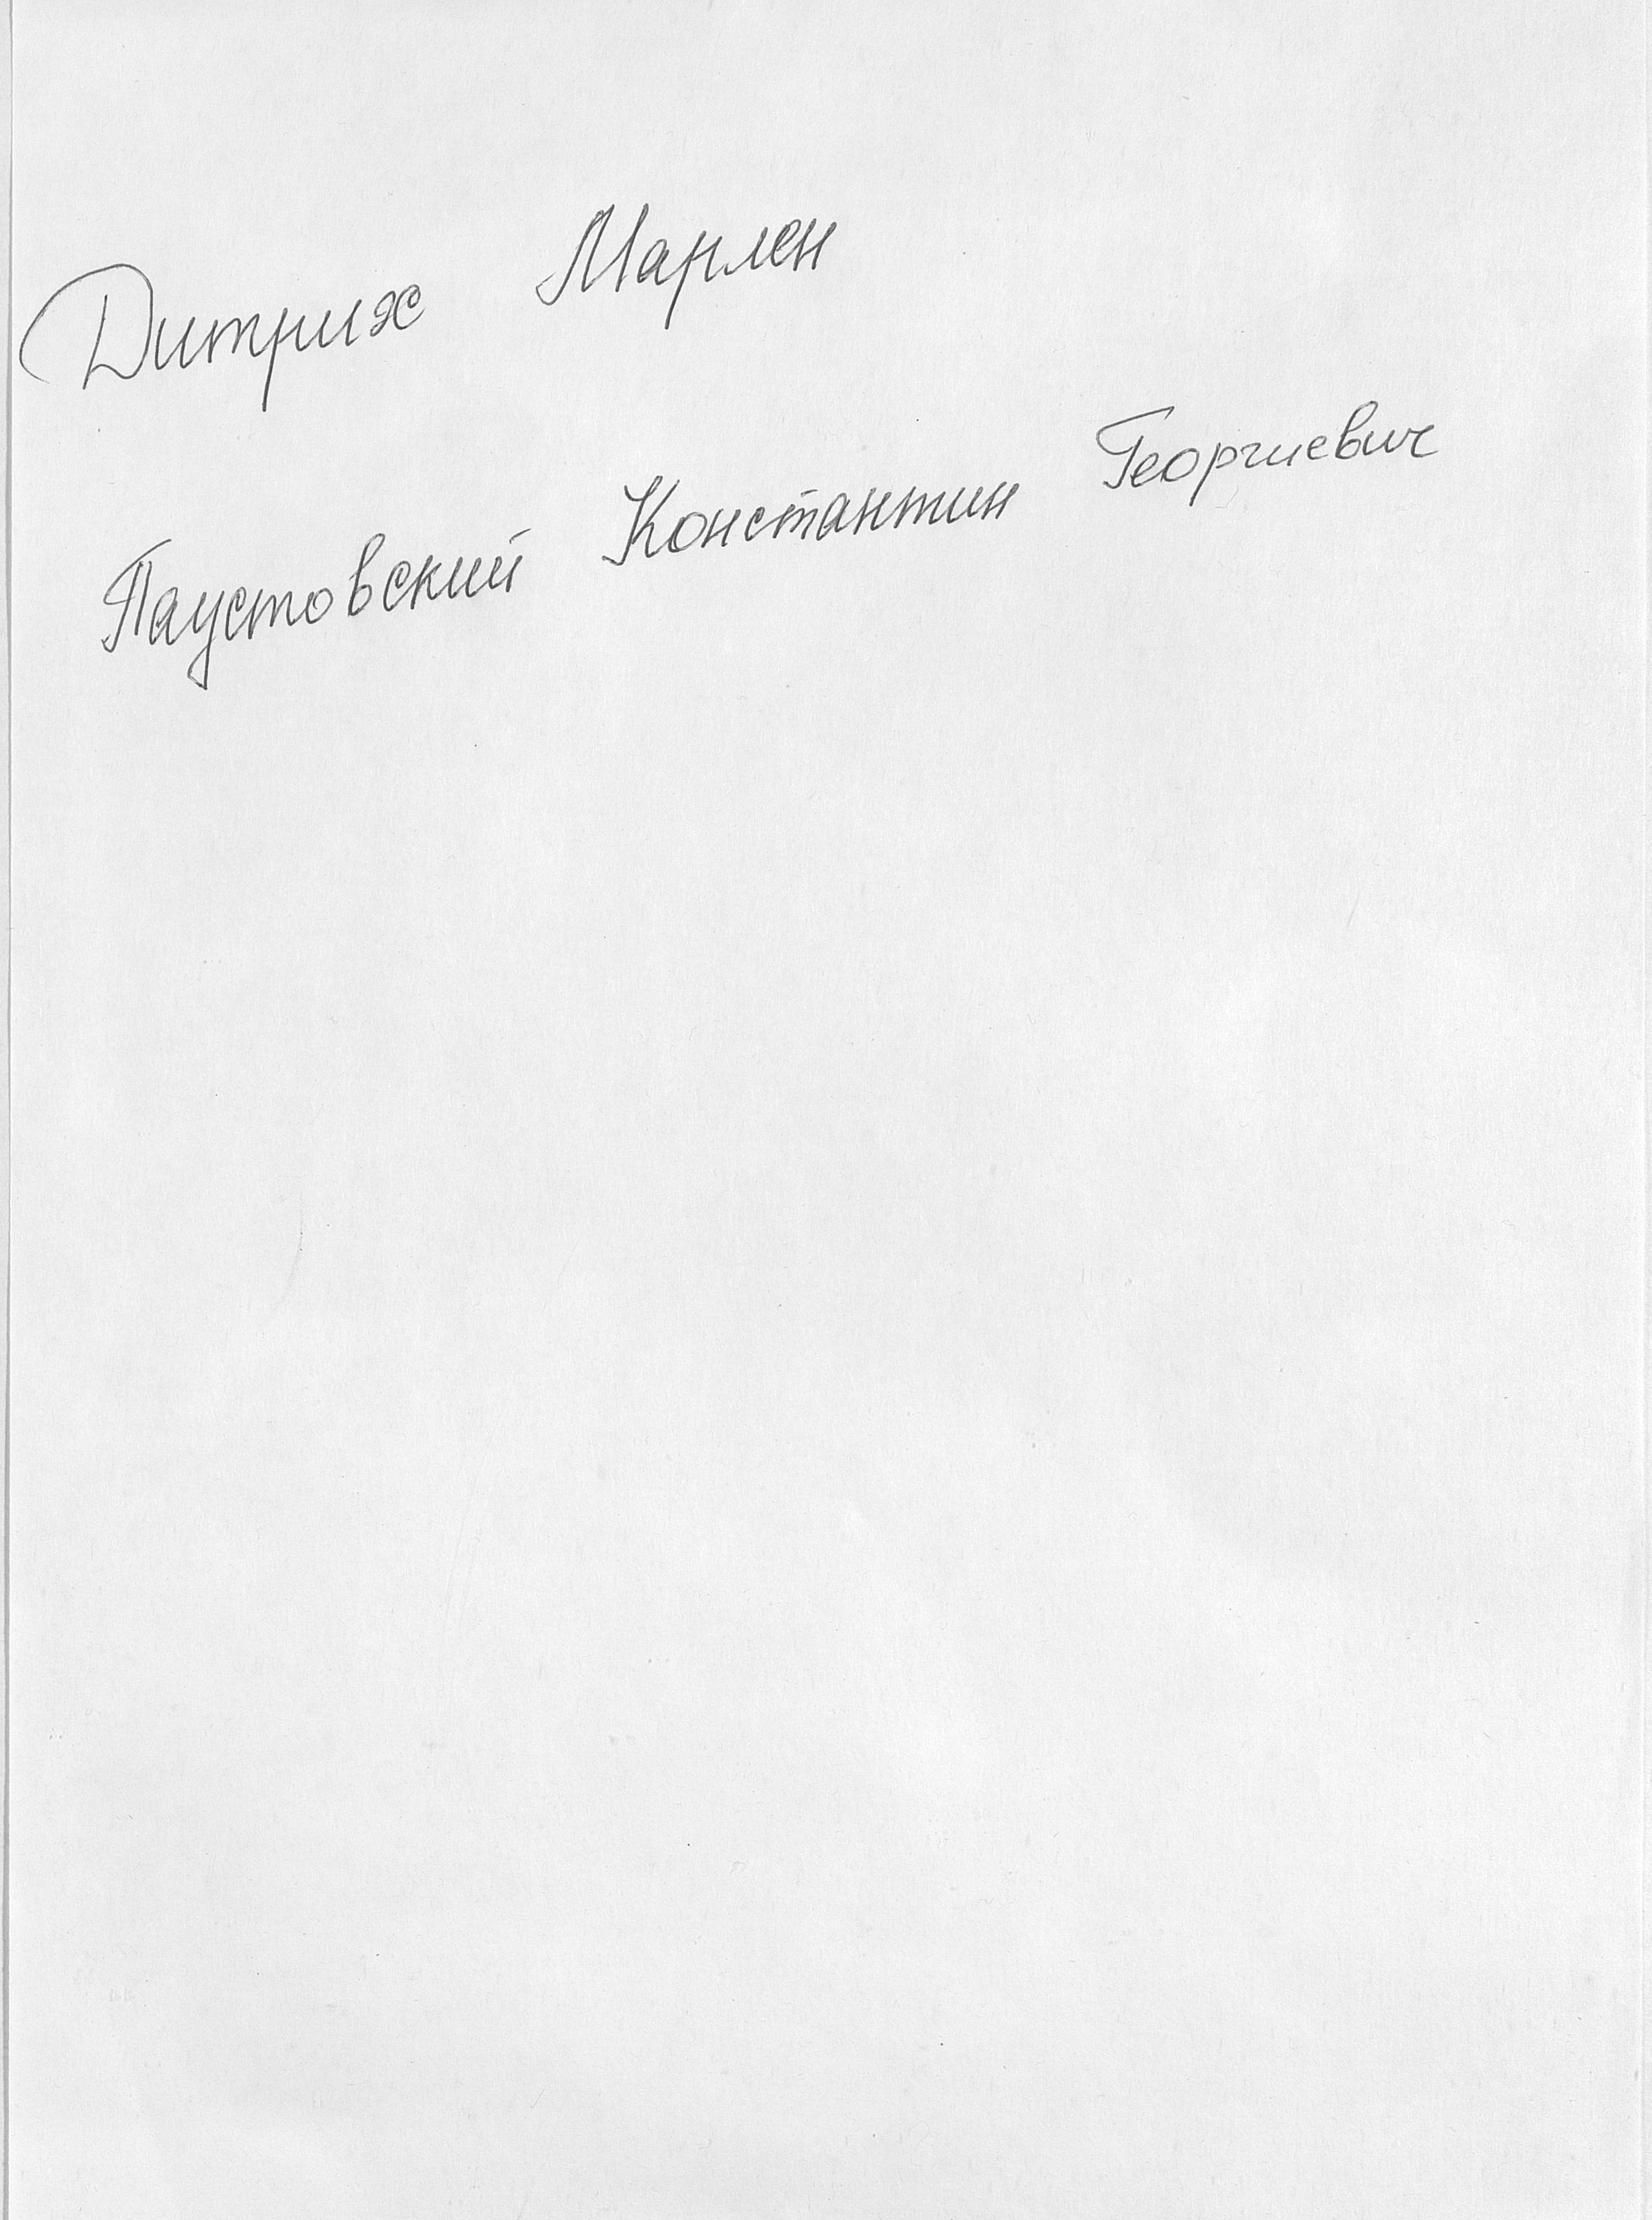 Дитрих Марлен
Паустовский Константин Георгиевич